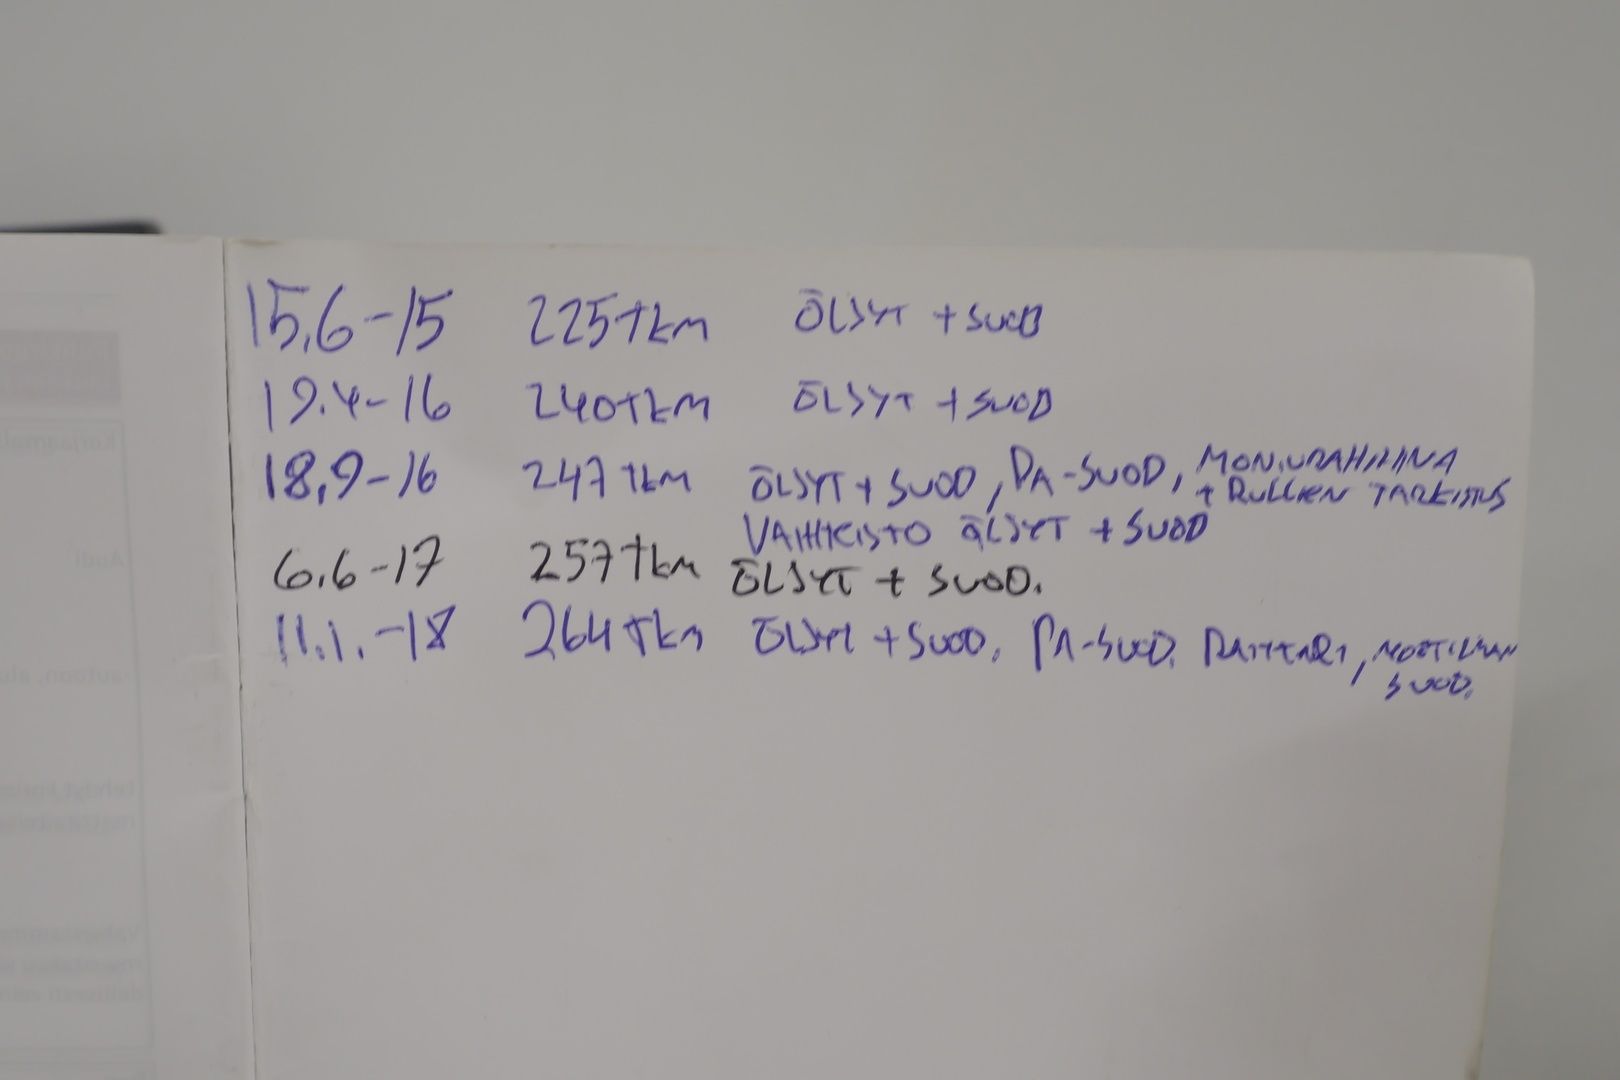 15.6-15 225tkm ÖLJYT + SUOD
19.4-16 240tkm ÖLJYT + SUOD
18.9-16 247tkm ÖLJYT + SUOD, PA-SUOD, MONIURAHIHNA
+ RULLIEN TARKISTUS
VAIHTEISTO ÖLJYT + SUOD
6.6-17 257tkm ÖLJYT + SUOD.
11.1.-18 264tkm ÖLJYT + SUOD. PA-SUOD. PATTERI,
SUOD.
Audi
autoon,
tehdyt